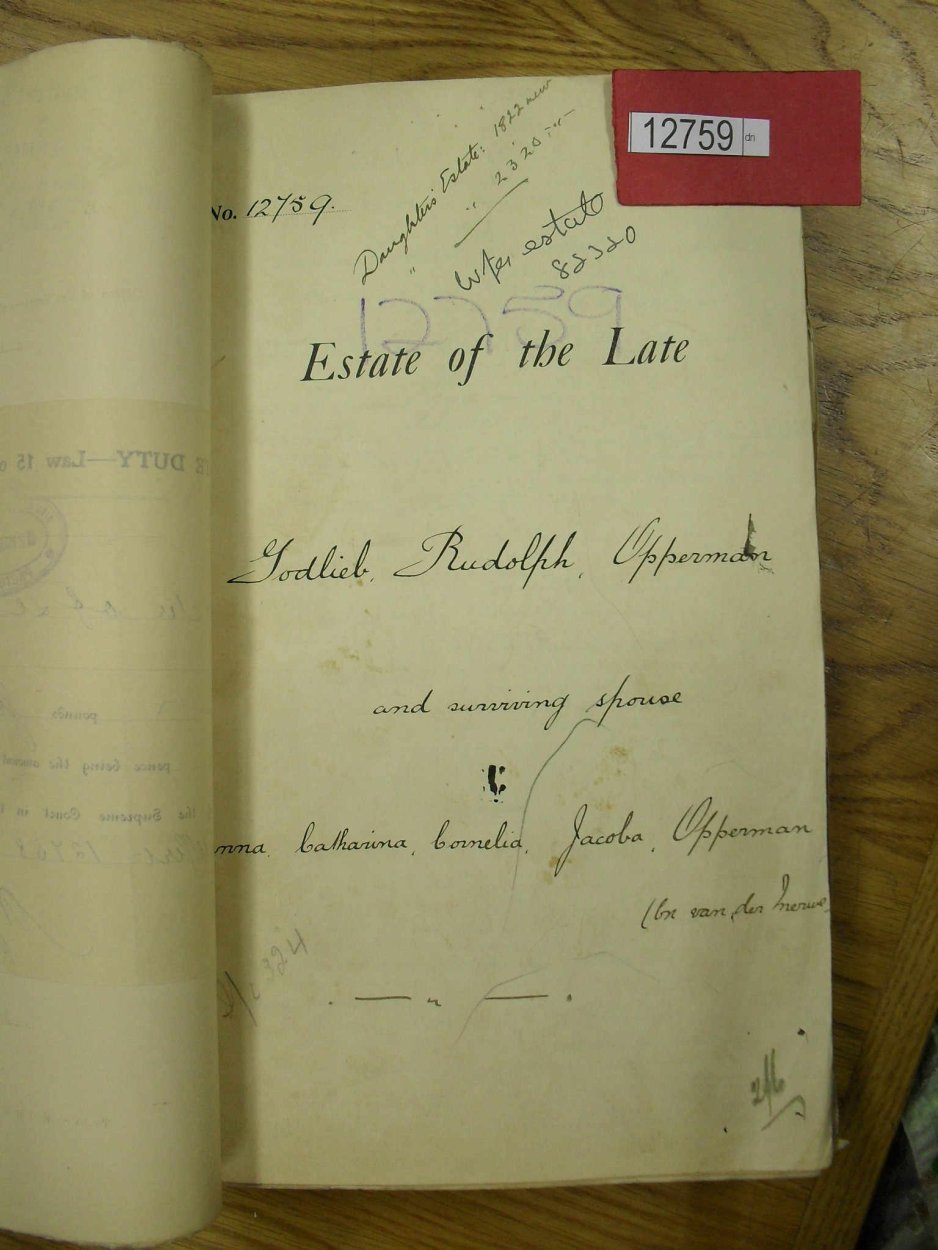 12759 dn
No. 12759.
Daughter's Estate: 1822 new
" " 2320
Wife, estate
82320
12759
Estate of the Late
Godlieb, Rudolph, Opperman
and surviving spouse
nna, Catharina, Cornelia, Jacoba, Opperman
(bn van der Merwe
324
2/6
DUTY—Law 15 o
pounds
pence being the amount
the Supreme Court in